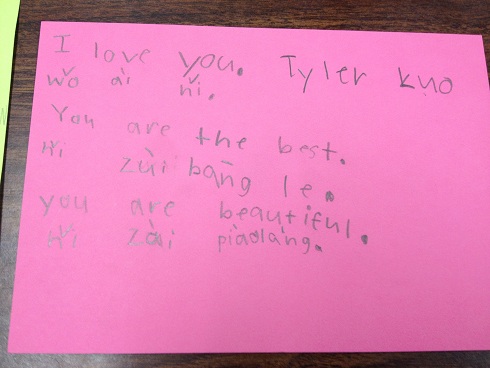 I love you. Tyler Kuo
wǒ ài nǐ.
You are the best.
Nǐ zùi bàng le.
you are beautiful.
Nǐ zài piàolàng.